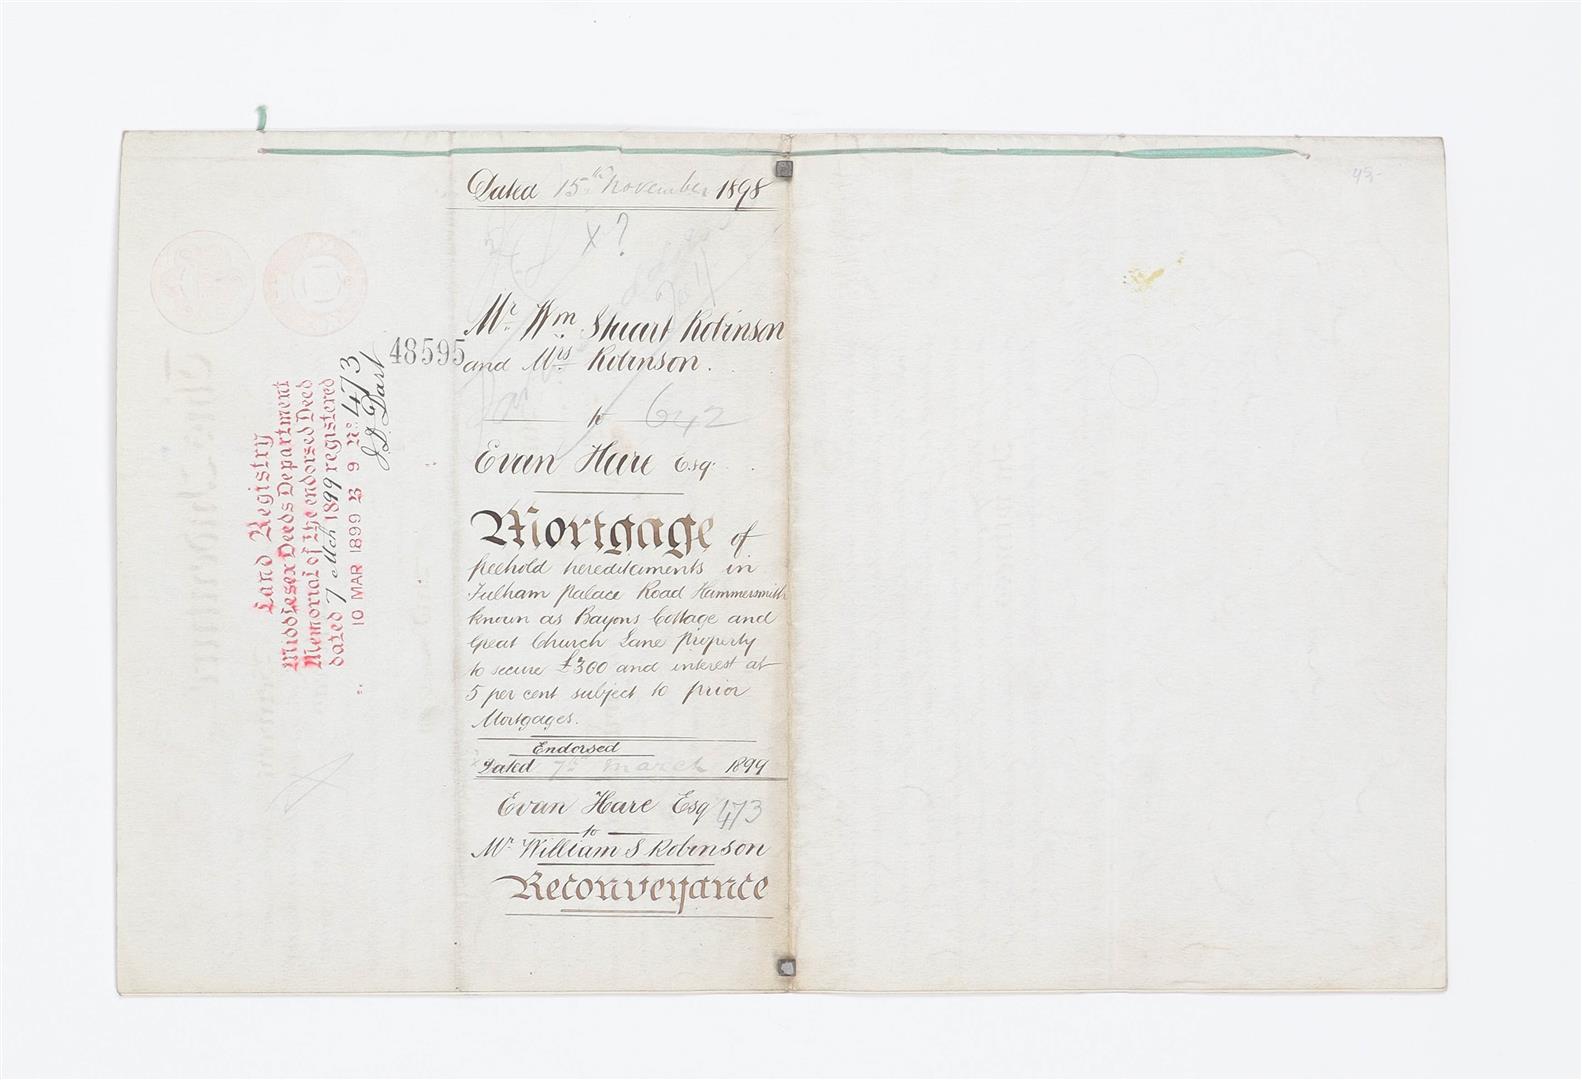 Dated 15th November 1898
x ?
Mr. Wm. Stuart Robinson
and Mrs Robinson.
to 642
Evan Hare Esq.
Mortgage of
freehold hereditaments in
Fulham Palace Road Hammersmith
known as Bayons Cottage and
Great Church Lane Property
to secure £300 and interest at
5 per cent subject to prior
Mortgages.
Endorsed
Dated 7th March 1899
Evan Hare Esq 473
to
Mr. William S Robinson
Reconveyance
48595
Land Registry
Middlesex Deeds Department
Memorial of the endorsed Deed
dated 7 Mch 1899 registered
10 MAR 1899 B 9 No. 473
J. D. Dart